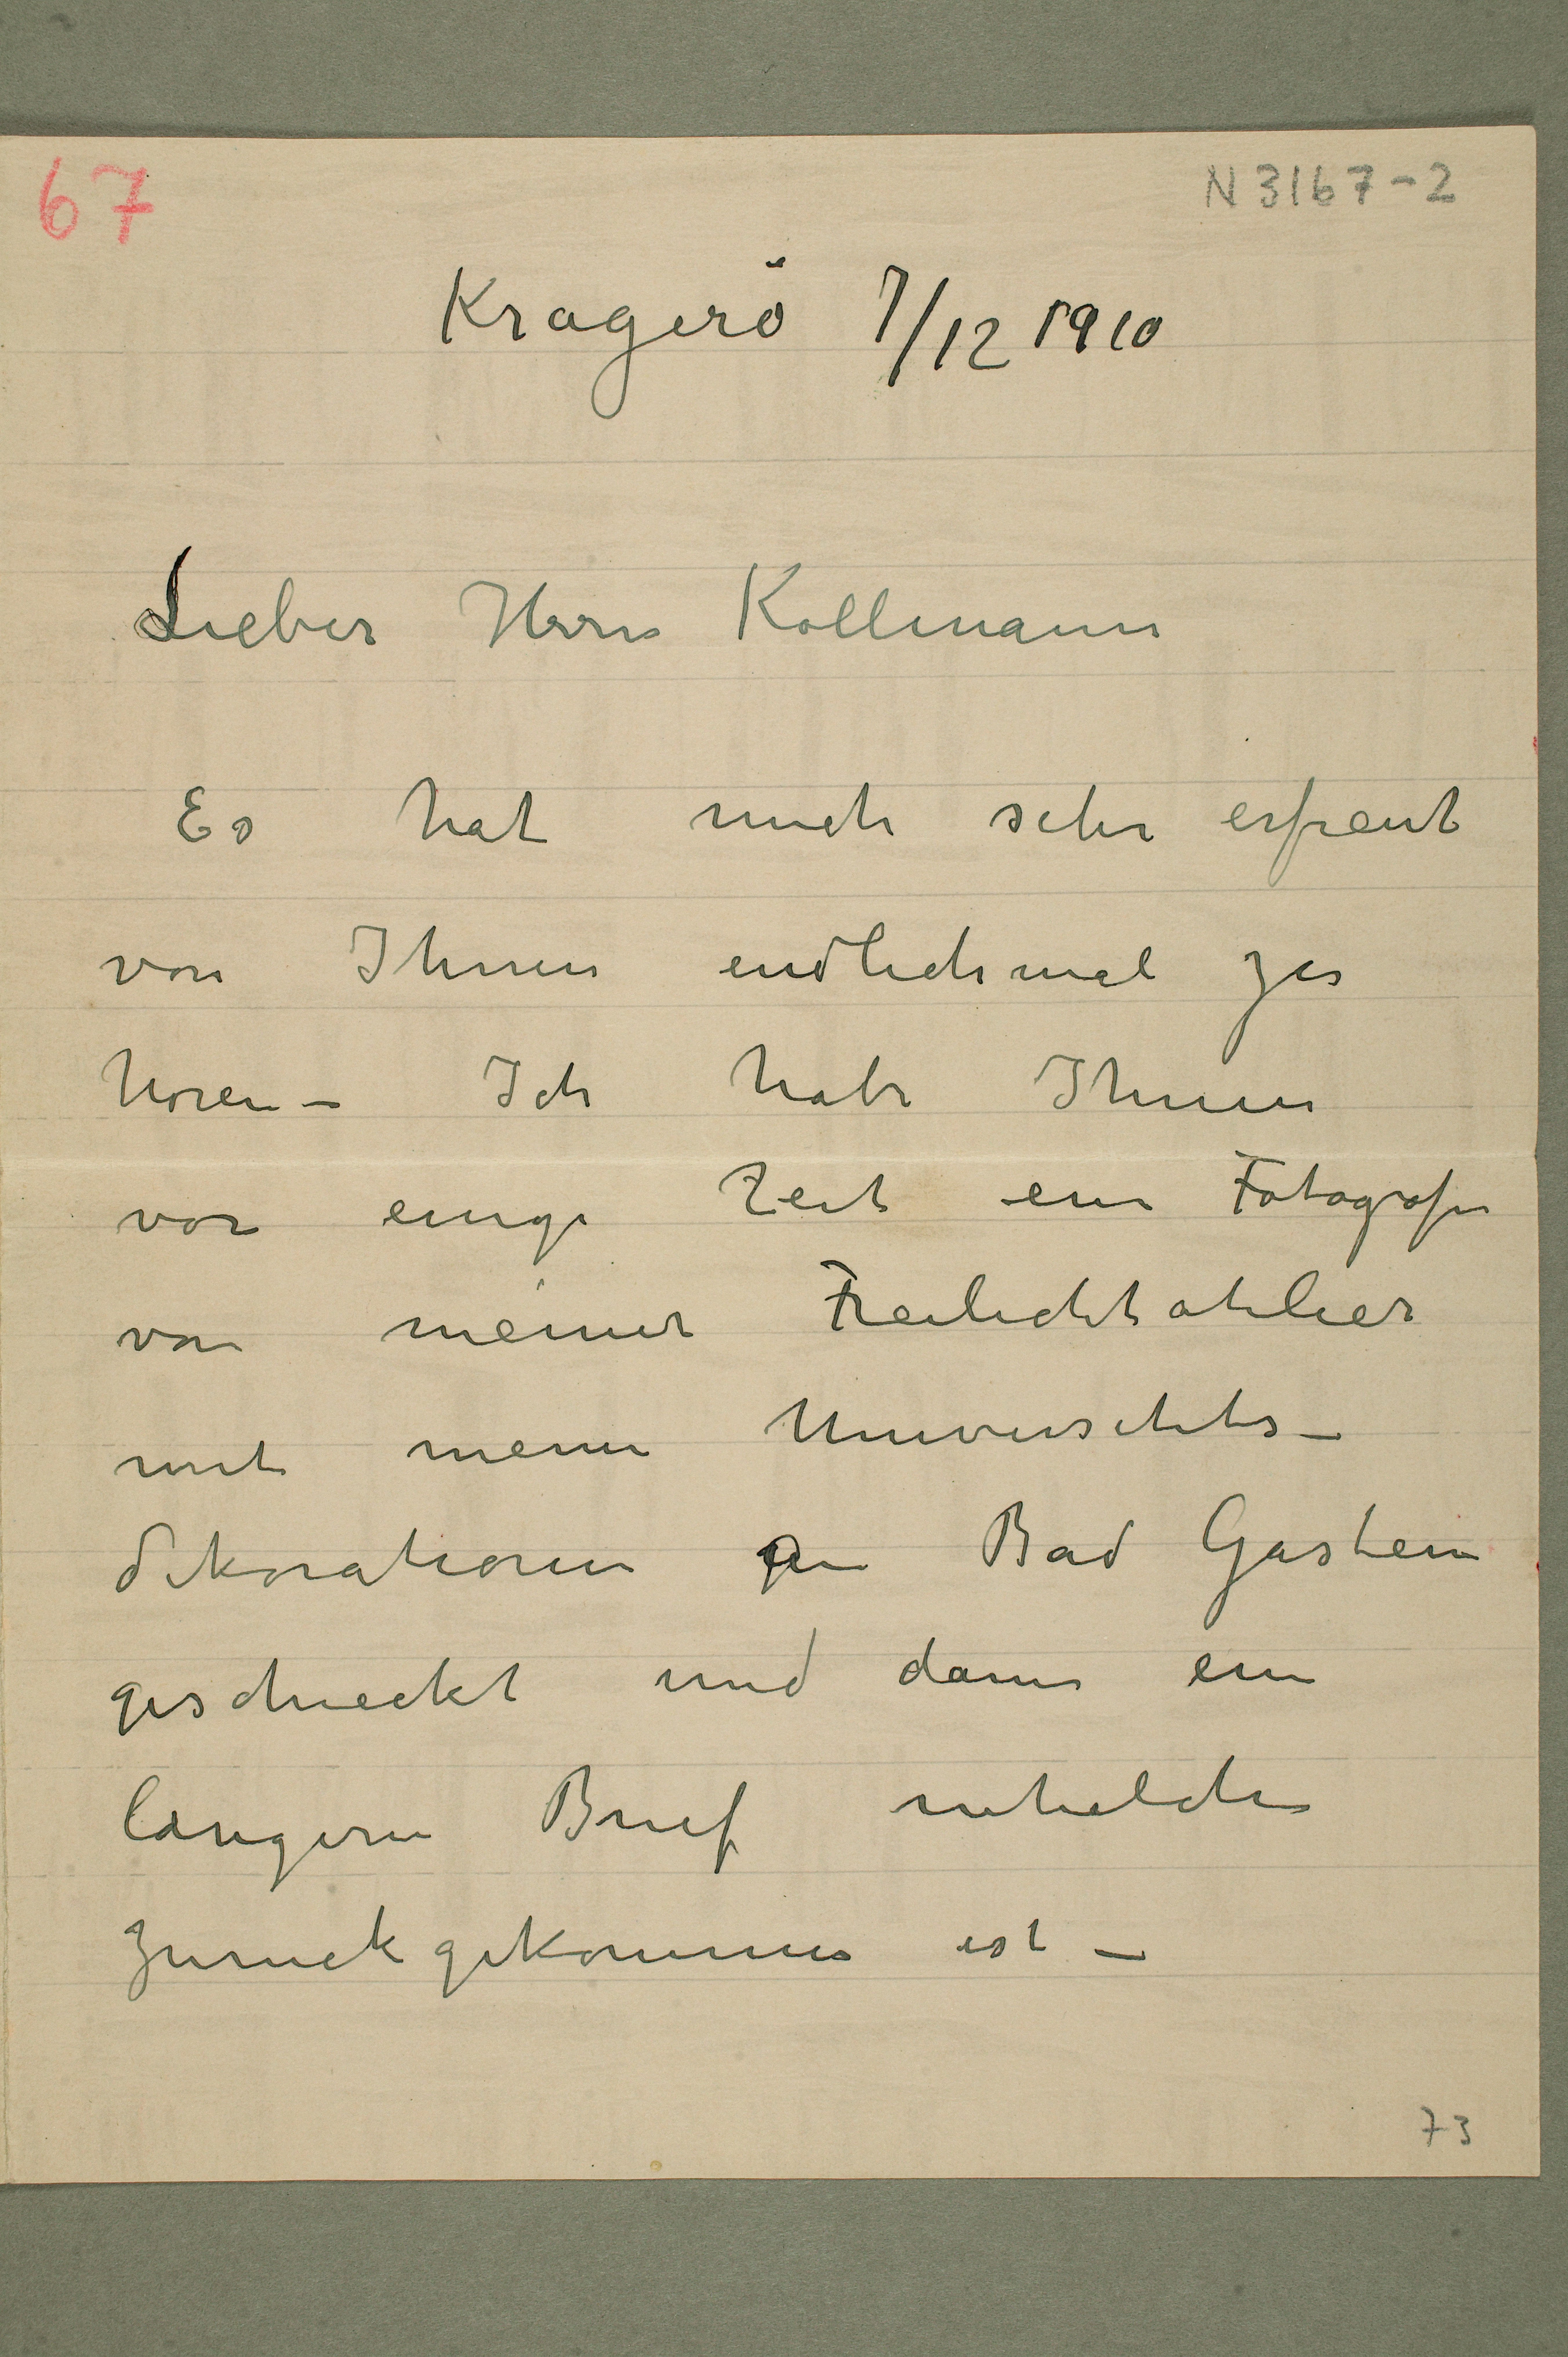 67
N 3167-2
Kragerö 7/12 1910
Lieber Herrn Kollmann
Es hat mich sehr erfreut
von Ihnen endlich mal zu
hören – Ich habe Ihnen
vor einige Zeit ein Fotografi
von meinet Freilichtatelier
mit meine Universitets–
dekorationen an Bad Gastein
geschieckt und dann ein
längeren Brief
zurückgekommen ist –
73